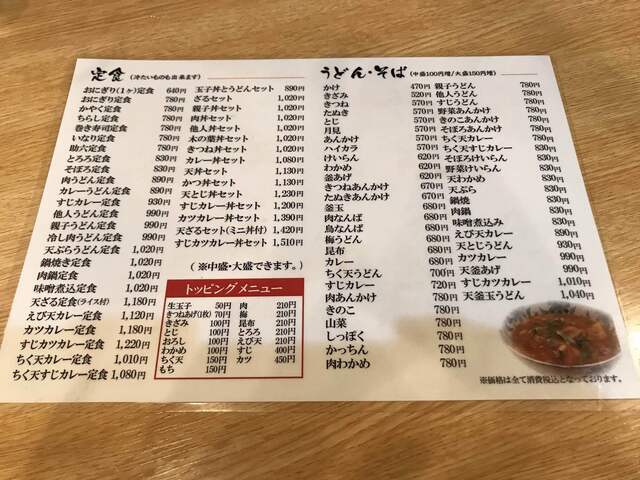 定食 (冷たいものも出来ます)
おにぎり(1ヶ)定食 640円
おにぎり定食 780円
かやく定食 780円
ちらし定食 780円
巻き寿司定食 780円
いなり定食 780円
助六定食 780円
とろろ定食 830円
そぼろ定食 830円
肉うどん定食 890円
カレーうどん定食 890円
すじカレー定食 930円
他人うどん定食 990円
親子うどん定食 990円
冷し肉うどん定食 990円
天ぷらうどん定食 1,020円
鍋焼き定食 1,020円
肉鍋定食 1,020円
味噌煮込定食 1,020円
天ざる定食(ライス付) 1,180円
えび天カレー定食 1,120円
カツカレー定食 1,180円
すじカツカレー定食 1,220円
ちく天カレー定食 1,010円
ちく天すじカレー定食 1,080円
玉子丼とうどんセット 890円
ざるセット 1,020円
親子丼セット 1,020円
肉丼セット 1,020円
他人丼セット 1,020円
木の葉丼セット 1,020円
きつね丼セット 1,020円
カレー丼セット 1,080円
天丼セット 1,130円
かつ丼セット 1,130円
天とじ丼セット 1,130円
すじカレー丼セット 1,200円
カツカレー丼セット 1,390円
天ざるセット(ミニ丼付) 1,420円
すじカツカレー丼セット 1,510円
(※中盛・大盛できます。)
トッピングメニュー
生玉子 50円 肉 210円
きつねあげ(1枚) 70円 梅 210円
きざみ 100円 昆布 210円
とじ 100円 とろろ 210円
おろし 100円 えび天 210円
わかめ 100円 すじ 400円
ちく天 150円 カツ 450円
もち 150円
うどん・そば (中盛100円増/大盛150円増)
かけ 470円
きざみ 520円
きつね 570円
たぬき 570円
とじ 570円
月見 570円
あんかけ 570円
ハイカラ 570円
けいらん 620円
わかめ 620円
釜あげ 620円
きつねあんかけ 670円
たぬきあんかけ 670円
釜玉 680円
肉なんば 680円
鳥なんば 680円
梅うどん 680円
昆布 680円
カレー 680円
ちく天うどん 700円
すじカレー 720円
肉あんかけ 780円
きのこ 780円
山菜 780円
しっぽく 780円
かっちん 780円
肉わかめ 780円
親子うどん 780円
他人うどん 780円
すじうどん 780円
野菜あんかけ 780円
きのこあんかけ 780円
そぼろあんかけ 780円
ちく天カレー 830円
ちく天すじカレー 830円
そぼろけいらん 830円
野菜けいらん 830円
天わかめ 830円
天ぷら 830円
鍋焼 830円
肉鍋 830円
味噌煮込み 830円
えび天カレー 930円
天とじうどん 930円
カツカレー 990円
天釜あげ 990円
すじカツカレー 1,010円
天釜玉うどん 1,040円
※価格は全て消費税込となっております。